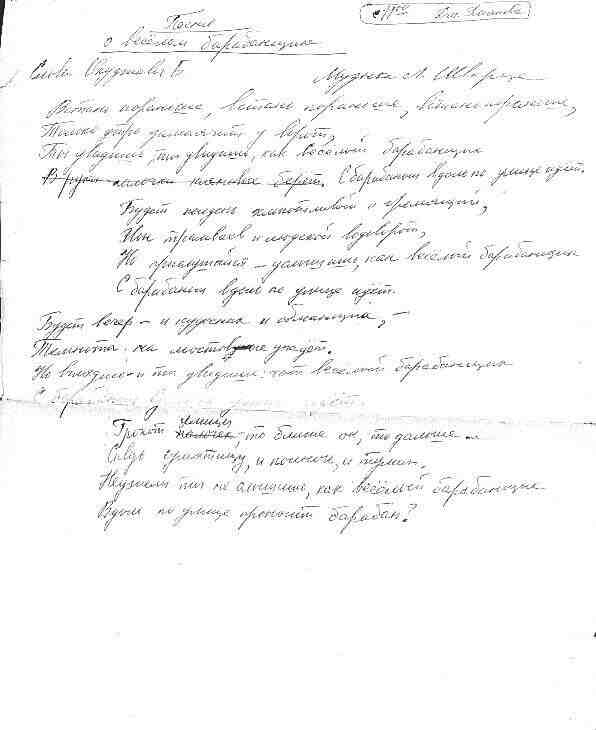 Песня
о весёлом барабанщике
Слова Окуджавы Б. Музыка Л. Шварца
Встань пораньше, встань пораньше, встань пораньше,
Только утро замаячит у ворот,
Ты увидишь, ты увидишь, как веселый барабанщик
В руки палочки кленовые берет. С барабаном вдоль по улице идет.
Будет полдень суматошливый и гремящий,
Звон трамваев и людской водоворот,
Но прислушайся - услышишь, как веселый барабанщик
С барабаном вдоль по улице идет.
Будет вечер - и кудесник и обманщик, -
Темнота на мостовые упадет.
Но вглядись - и ты увидишь: вот веселый барабанщик
С барабаном вдоль по улице идет.
улицы
Грохот палочек, то ближе он, то дальше...
Сквозь сумятицу, и полночь, и туман.
Неужели ты не слышишь, как весёлый барабанщик
Вдоль по улице проносит барабан?